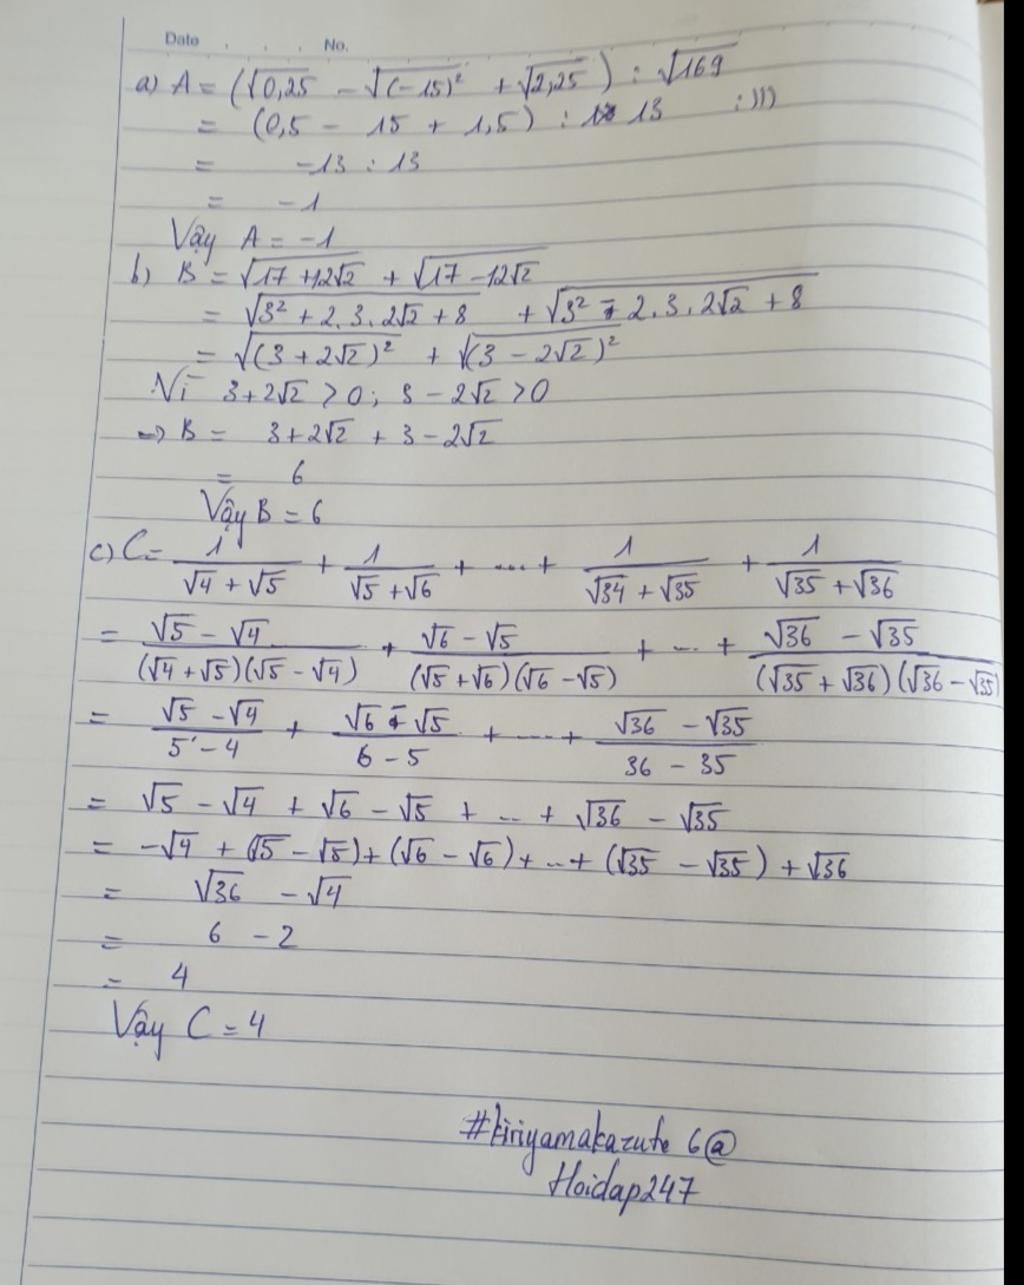 Date . . . No.
a) A = (√0,25 - √(-15)² + √2,25) : √169
= (0,5 - 15 + 1,5) : 13 :)))
= -13 : 13
= -1
Vậy A = -1
b) B = √17 + 12√2 + √17 - 12√2
= √3² + 2.3.2√2 + 8 + √3² - 2.3.2√2 + 8
= √(3 + 2√2)² + √(3 - 2√2)²
Vì 3 + 2√2 > 0; 3 - 2√2 > 0
=> B = 3 + 2√2 + 3 - 2√2
= 6
Vậy B = 6
c) C = 1/(√4 + √5) + 1/(√5 + √6) + .... + 1/(√34 + √35) + 1/(√35 + √36)
= (√5 - √4)/((√4 + √5)(√5 - √4)) + (√6 - √5)/((√5 + √6)(√6 - √5)) + ... + (√36 - √35)/((√35 + √36)(√36 - √35))
= (√5 - √4)/(5 - 4) + (√6 - √5)/(6 - 5) + .... + (√36 - √35)/(36 - 35)
= √5 - √4 + √6 - √5 + ... + √36 - √35
= -√4 + (√5 - √5) + (√6 - √6) + ... + (√35 - √35) + √36
= √36 - √4
= 6 - 2
= 4
Vậy C = 4
#kiriyamakazuto 6@
Hoidap247